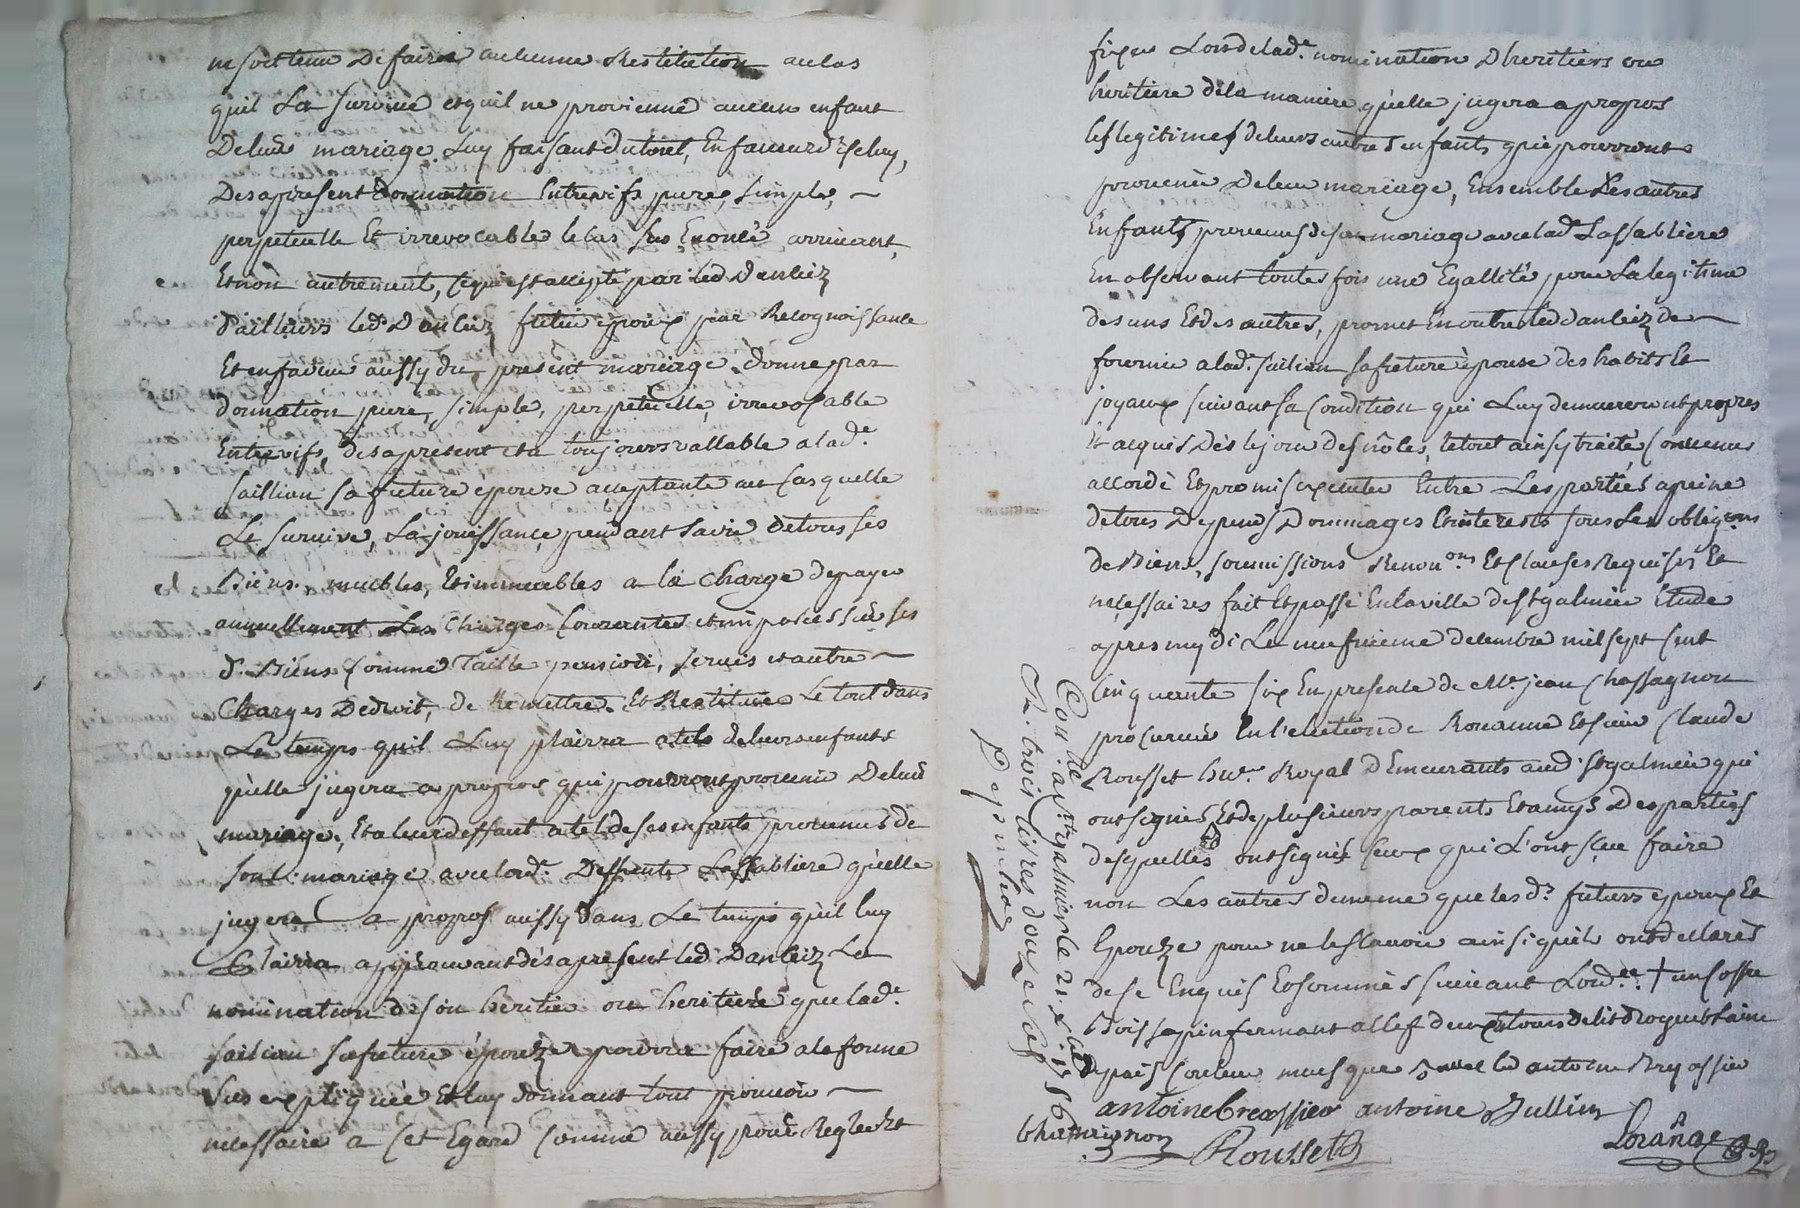 ne soit tenu De faire aucunne Restitution au cas
quil La survive et quil ne provienne aucun enfant
Deleur mariage Luy faisant dutout, En faveur d'iceluy,
Des apresent donnation Entrevifs pure, simple,
perpetuelle Et irrevocable le cas sus Enoncé arrivant,
Et non autrement, ce qui est accepté par led Danleiz
D'ailleurs led. Danleiz futur epoux par Recognoissance
Et en faveur aussy du present mariage donne par
donnation pure, simple, perpetuelle, irrevocable
Entrevifs, des apresent et a toujours vallable a lad.e
saillian sa future épouse acceptante au cas quelle
Le survive, La jouissance pendant sa vie De tous ses
Biens meubles, Et immeubles a la charge de payer
annuellement Les Charges Courantes et imposées sur ses
d. Biens comme Taille pension, servis et autre
Charges Deduit, de Remettre Et Restituer Le tout dans
Le temps quil Luy plairra a tels de leurs enfants
qu'elle jugera a propos qui pourront provenir Deleur
mariage, Et a leur deffaut a tel de ses enfants provenus de
son mariage avec lad.e Deffunte Lassabliere qu'elle
jugera a propos aussy dans Le temps qu'il luy
Plairra approuvant dès apresent led Danleiz La
nomination de son heritier ou heritiere que lad.e
sailian sa future épouze pourra faire a la forme
sus expliquée Et luy donnant tout pouvoir
necessaire a cet Egard comme aussy pour Regler Et
fixer Lors de lad.e nomination D'heritiers ou
heritiere de la maniere qu'elle jugera a propos
les legitimes de leurs autres enfants qui pourront
provenir De leur mariage, Ensemble Des autres
Enfants provenus de son mariage avec lad Lassabliere
En observant toutes fois une Egallité pour La legitime
des uns Et des autres, promet En outre led danleiz de
fournir a lad. sailian sa future épouse des habits Et
joyaux suivant sa Condition qui Luy demeureront propres
Et acquis Dès le jour des nôces, le tout ainsy traité Convenu
accordé Et promis executer Entre Les parties a peine
de tous Depens Dommages Et interests sous Les oblig.ons
de Biens, soumissions Renon.ons Et Clauses Requises Et
necessaires fait Et passé En la ville de st galmier Etude
apres mydi Le neufvieme decembre mil sept cent
Cinquante six En presence de Me. jean Chassagnon
procureur En l'election de Roanne Et sieur Claude
Rousset hu.er Royal Demeurants aud. st galmier qui
ont signés Et de plusieurs parents Et amys Des parties
desquelles ont signés ceux qui L'ont sçue faire
non Les autres dememe que les d.s futurs epoux Et
Epouze pour ne le sçavoir ainsi quils ont declarés
de ce Enquis Et sommés suivant L'ord.ce + un coffre
Bois sapin fermant a clef deux tours de lit
de pais Couleur antoine Bryossier
antoine breassieo antoine Jullien
Chassaignon Rousset Lorange
Con.lé a st galmier le 21 x.bre 1756
R. trois livres douze sols